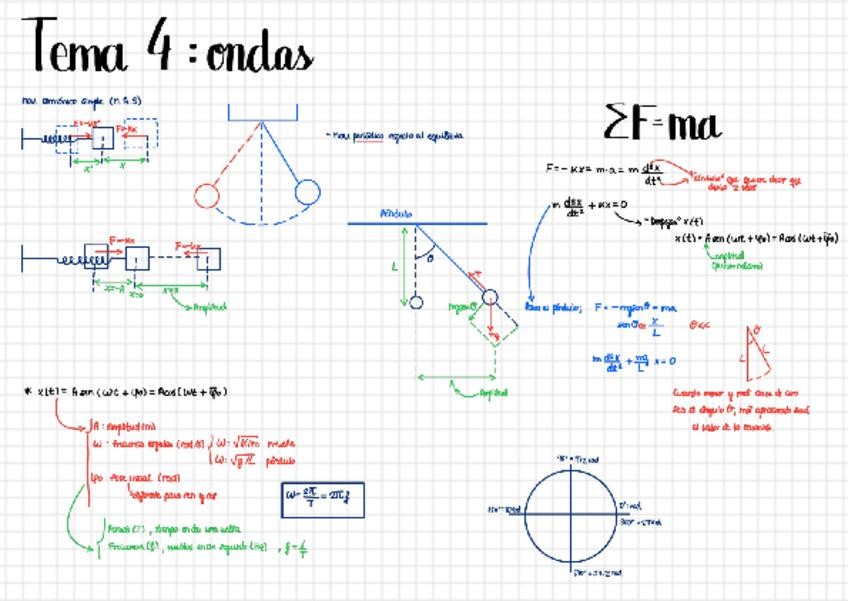 Tema 4 : ondas
Mov. armónico simple (M.A.S)
F=-kx F=-kx
x' x
- Mov. periódico respecto al equilibrio
ΣF=ma
F=-kx= m·a= m d²x/dt²
m d²x/dt² + kx=0
"Despejar" x(t)
x(t)= A sen (ωt + φ₀)= A cos (ωt+φ₀)
amplitud
Péndulo
L
θ
F=-kx F=-kx
x=-A x=0 x=A
Amplitud
mgsenθ
A
Amplitud
Para el péndulo; F = -mgsenθ = ma
senθ≈ x/L θ<<
m d²x/dt² + mg/L x=0
θ
L L
Cuando menor y más cerca de cero
sea el ángulo θ, más aproximado será
el valor de la ecuación.
* x(t)= A sen (ωt + φ₀)= A cos (ωt + φ₀)
A: Amplitud (m)
ω: Frecuencia angular (rad/s) ω: √k/m muelle
ω: √g/L péndulo
φ₀: Fase inicial (rad)
diferente para sen y cos
ω= 2π/T = 2πf
Periodo (T), tiempo en dar una vuelta
Frecuencia (f), vueltas en un segundo (Hz), f= 1/T
90° = π/2 rad
0° rad
360° = 2π rad
270° = 3π/2 rad